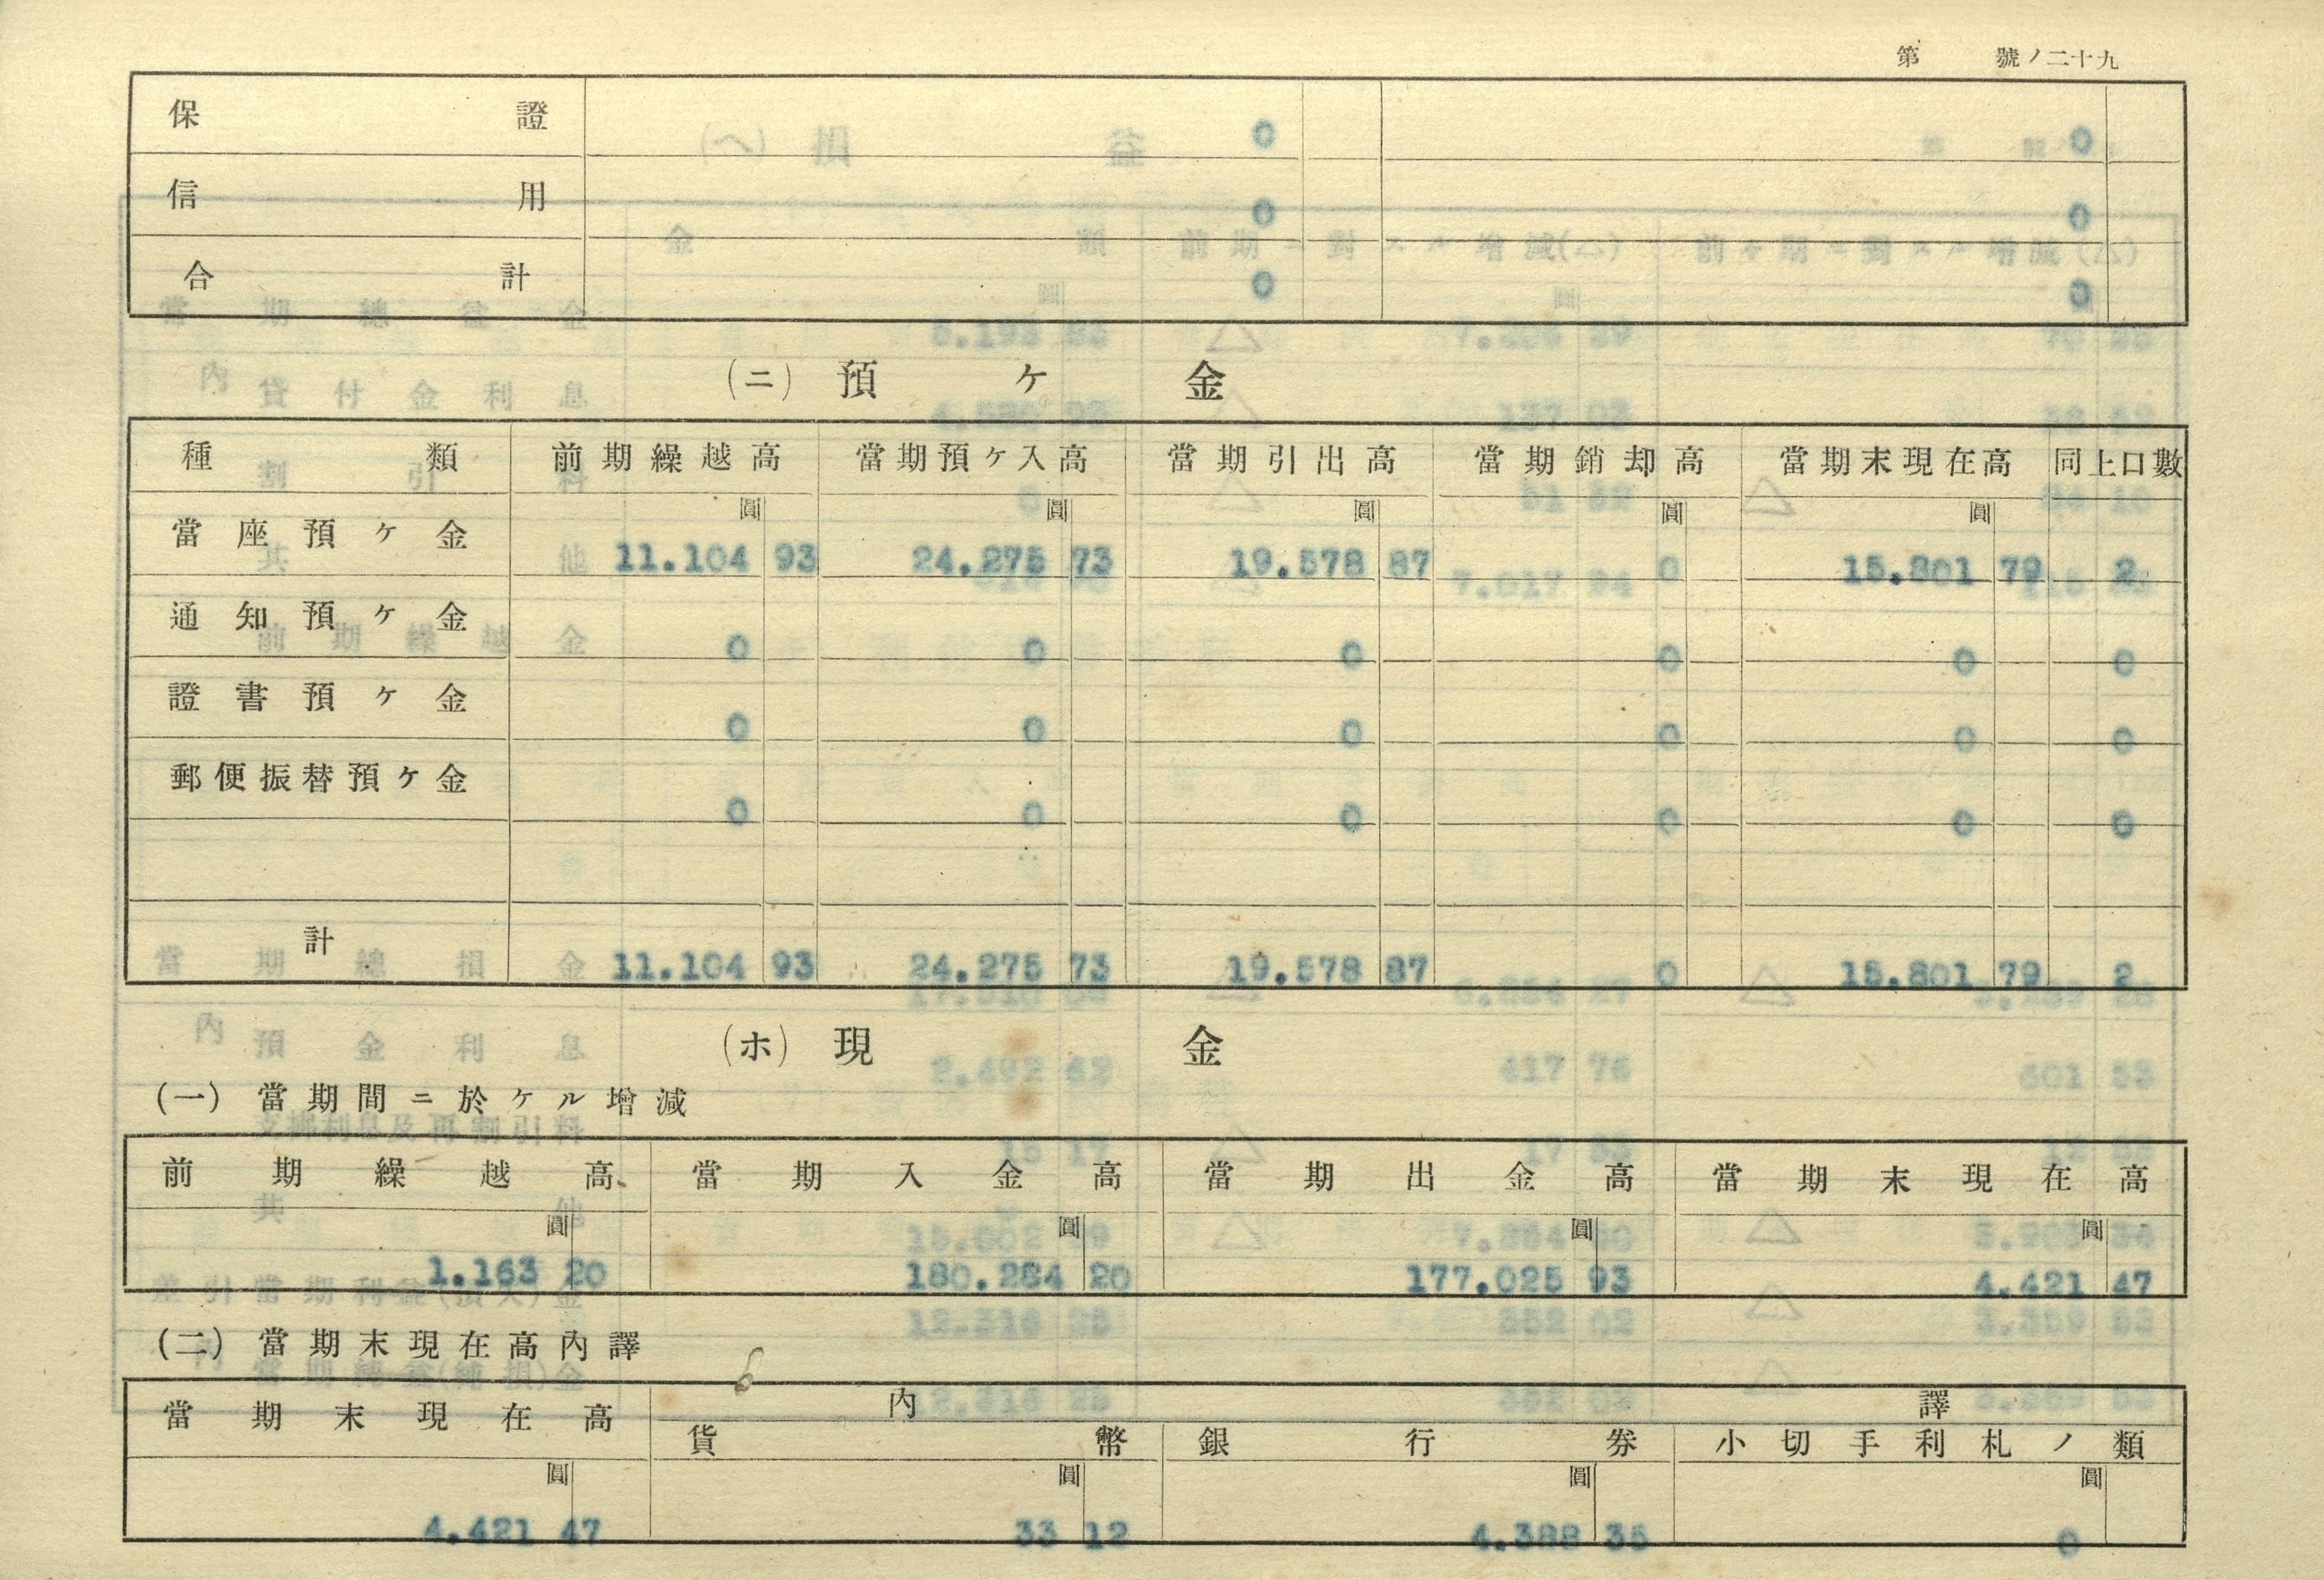 第 號ノ二十九
保證 0 0
信用 0 0
合計 0 0
(ニ) 預ケ金
種類 前期繰越高 當期預ケ入高 當期引出高 當期銷却高 當期末現在高 同上口數
圓 圓 圓 圓 圓
當座預ケ金 11.104 93 24.275 73 19.578 87 0 15.801 79 2
通知預ケ金 0 0 0 0 0 0
證書預ケ金 0 0 0 0 0 0
郵便振替預ケ金 0 0 0 0 0 0
計 11.104 93 24.275 73 19.578 87 0 15.801 79 2
(ホ) 現金
(一) 當期間ニ於ケル增減
前期繰越高 當期入金高 當期出金高 當期末現在高
圓 圓 圓 圓
1.163 20 180.284 20 177.025 93 4.421 47
(二) 當期末現在高內譯
當期末現在高 內譯
貨幣 銀行券 小切手利札ノ類
圓 圓 圓 圓
4.421 47 33 12 4.388 35 0